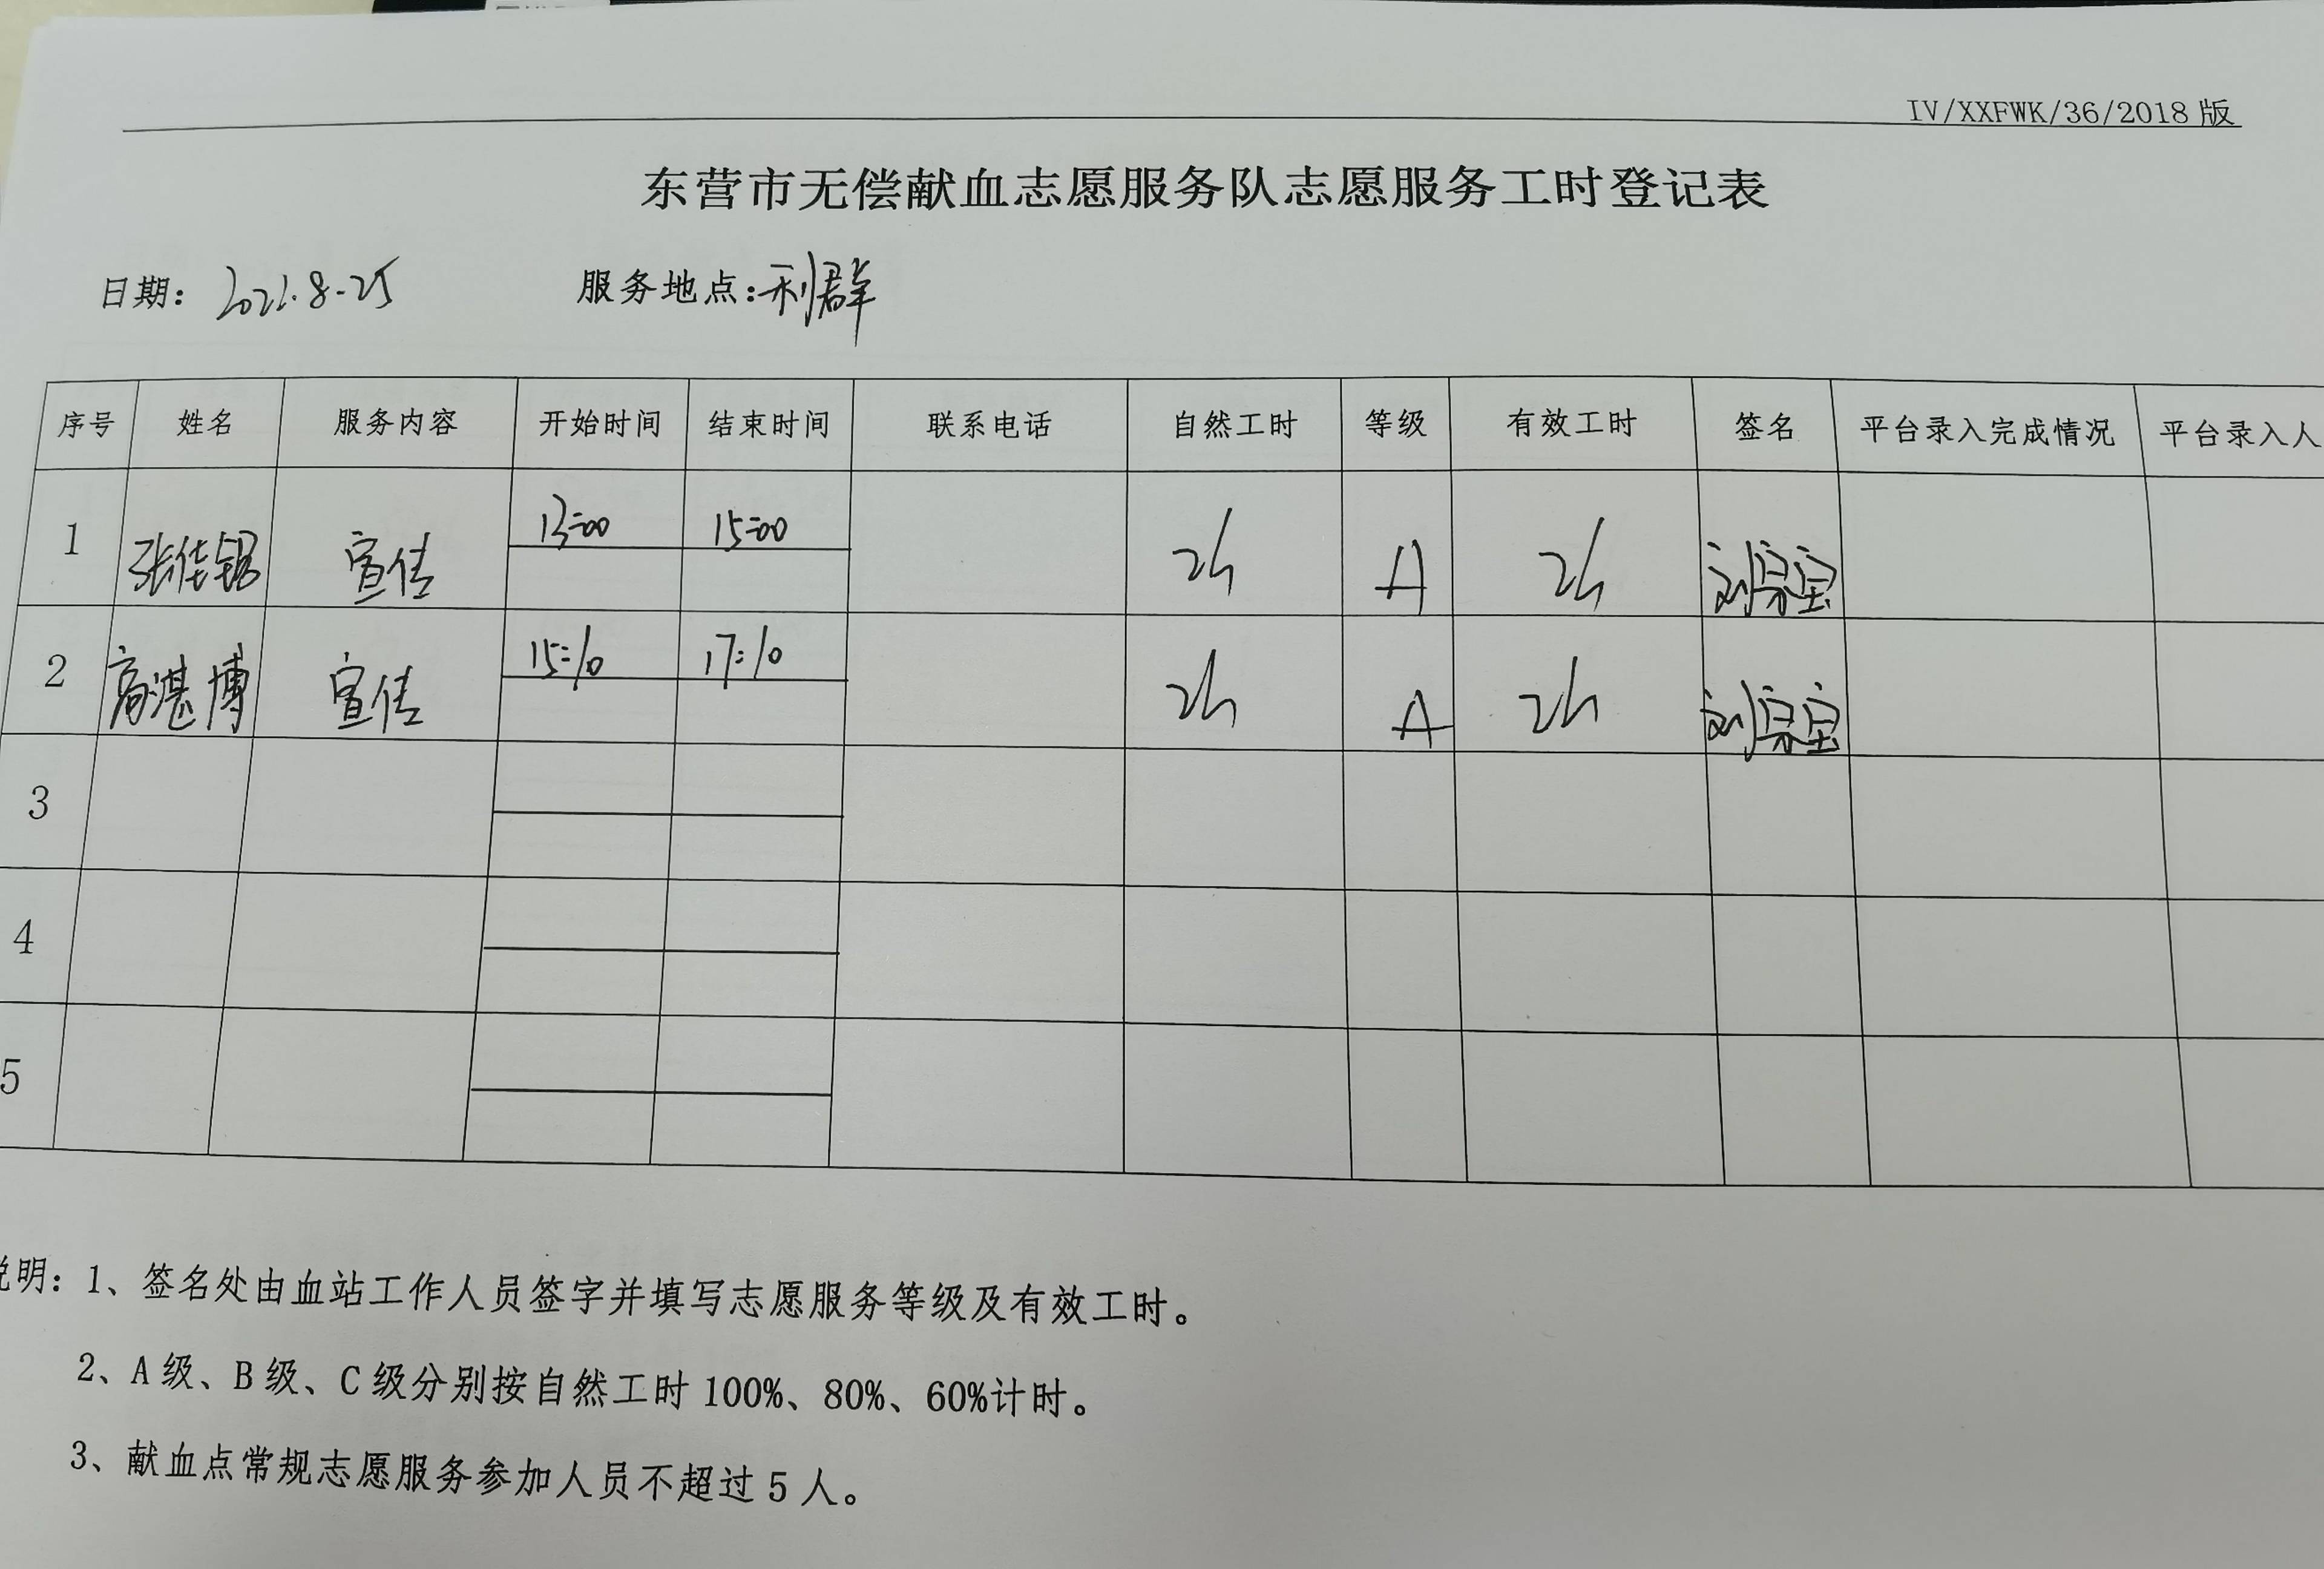 IV/XXFWK/36/2018 版
东营市无偿献血志愿服务队志愿服务工时登记表
日期: 2021.8.25 服务地点:利群
序号 姓名 服务内容 开始时间 结束时间 联系电话 自然工时 等级 有效工时 签名 平台录入完成情况 平台录入人
1 张佳 宣传 13:00 15:00 2h A 2h
2 高湛博 宣传 15:10 17:10 2h A 2h
3
4
5
说明: 1、签名处由血站工作人员签字并填写志愿服务等级及有效工时。
2、A 级、B 级、C 级分别按自然工时 100%、80%、60%计时。
3、献血点常规志愿服务参加人员不超过 5 人。